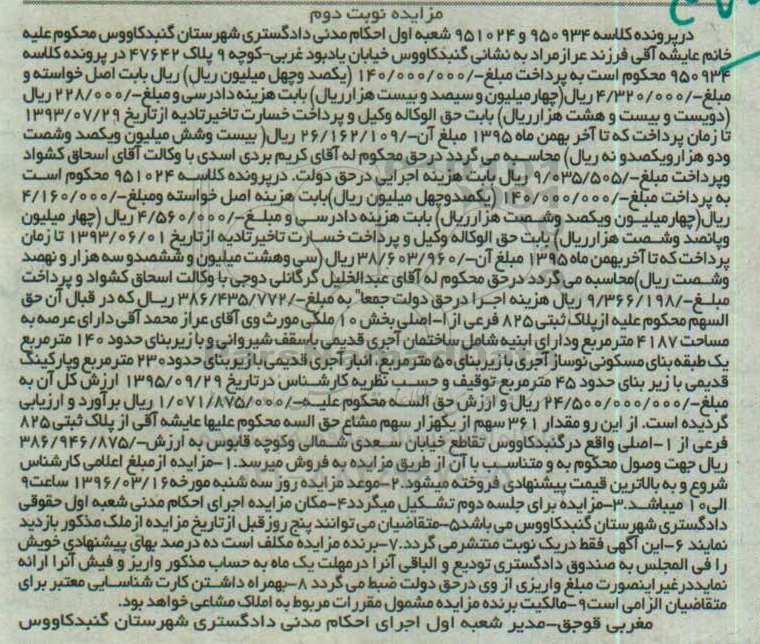 مزایده نوبت دوم
درپرونده کلاسه ۹۵۰۹۳۴ و ۹۵۱۰۲۴ شعبه اول احکام مدنی دادگستری شهرستان گنبدکاووس محکوم علیه
خانم عایشه آقی فرزند عرازمراد به نشانی گنبدکاووس خیابان یادبود غربی-کوچه ۹ پلاک ۴۷۶۴۲ در پرونده کلاسه
۹۵۰۹۳۴ محکوم است به پرداخت مبلغ-/۱۴۰/۰۰۰/۰۰۰ (یکصد وچهل میلیون ریال) ریال بابت اصل خواسته و
مبلغ-/۴/۳۲۰/۰۰۰ ریال(چهارمیلیون و سیصد و بیست هزارریال) بابت هزینه دادرسی و مبلغ-/۲۲۸/۰۰۰ ریال
(دویست و بیست و هشت هزارریال) بابت حق الوکاله وکیل و پرداخت خسارت تاخیرتادیه ازتاریخ ۱۳۹۳/۰۷/۲۹
تا زمان پرداخت که تا آخر بهمن ماه ۱۳۹۵ مبلغ آن-/۲۶/۱۶۲/۱۰۹ ریال( بیست وشش میلیون ویکصد وشصت
ودو هزارویکصدو نه ریال) محاسبه می گردد درحق محکوم له آقای کریم بردی اسدی با وکالت آقای اسحاق کشواد
وپرداخت مبلغ-/۹/۰۳۵/۵۰۵ ریال بابت هزینه اجرایی درحق دولت. درپرونده کلاسه ۹۵۱۰۲۴ محکوم است
به پرداخت مبلغ-/۱۴۰/۰۰۰/۰۰۰ (یکصدوچهل میلیون ریال)بابت هزینه اصل خواسته ومبلغ-/۴/۱۶۰/۰۰۰
ریال(چهارمیلیون ویکصد وشصت هزارریال) بابت هزینه دادرسی و مبلغ-/۴/۵۶۰/۰۰۰ ریال (چهار میلیون
وپانصد وشصت هزارریال) بابت حق الوکاله وکیل و پرداخت خسارت تاخیرتادیه ازتاریخ ۱۳۹۳/۰۶/۰۱ تا زمان
پرداخت که تا آخربهمن ماه ۱۳۹۵ مبلغ آن-/۳۸/۶۰۳/۹۶۰ ریال (سی وهشت میلیون و ششصدو سه هزار و نهصد
وشصت ریال)محاسبه می گردد درحق محکوم له آقای عبدالخلیل گرگانلی دوجی با وکالت اسحاق کشواد و پرداخت
مبلغ-/۹/۳۶۶/۱۹۸ ریال هزینه اجرا درحق دولت جمعا" به مبلغ-/۳۸۶/۴۳۵/۷۷۲ ریال که در قبال آن حق
السهم محکوم علیه ازپلاک ثبتی ۸۲۵ فرعی از ۱-اصلی بخش ۱۰ ملکی مورث وی آقای عراز محمد آقی دارای عرصه به
مساحت ۴۱۸۷ مترمربع ودارای ابنیه شامل ساختمان آجری قدیمی باسقف شیروانی و با زیربنای حدود ۱۴۰ مترمربع
یک طبقه بنای مسکونی نوساز آجری با زیربنای ۵۰ مترمربع، انبارآجری قدیمی بازیربنای حدود ۲۳۰ مترمربع وپارکینگ
قدیمی با زیر بنای حدود ۴۵ مترمربع توقیف و حسب نظریه کارشناس درتاریخ ۱۳۹۵/۰۹/۲۹ ارزش کل آن به
مبلغ-/۲۴/۵۰۰/۰۰۰/۰۰۰ ریال و ارزش حق السه محکوم علیه-/۱/۰۷۱/۸۷۵/۰۰۰ ریال برآورد و ارزیابی
گردیده است. از این رو مقدار ۳۶۱ سهم از یکهزار سهم مشاع حق السه محکوم علیها عایشه آقی از پلاک ثبتی ۸۲۵
فرعی از ۱-اصلی واقع درگنبدکاووس تقاطع خیابان سعدی شمالی وکوچه قابوس به ارزش-/۳۸۶/۹۴۶/۸۷۵
ریال جهت وصول محکوم به و متناسب با آن از طریق مزایده به فروش میرسد.۱-مزایده ازمبلغ اعلامی کارشناس
شروع و به بالاترین قیمت پیشنهادی فروخته میشود.۲-موعد مزایده روز سه شنبه مورخه۱۳۹۶/۰۳/۱۶ ساعت۹
الی۱۰ میباشد.۳-مزایده برای جلسه دوم تشکیل میگردد۴-مکان مزایده اجرای احکام مدنی شعبه اول حقوقی
دادگستری شهرستان گنبدکاووس می باشد۵-متقاضیان می توانند پنج روزقبل ازتاریخ مزایده ازملک مذکور بازدید
نمایند ۶-این آگهی فقط دریک نوبت منتشرمی گردد.۷-برنده مزایده مکلف است ده درصد بهای پیشنهادی خویش
را فی المجلس به صندوق دادگستری تودیع و الباقی آنرا درمهلت یک ماه به حساب مذکور واریز و فیش آنرا ارائه
نمایددرغیراینصورت مبلغ واریزی از وی درحق دولت ضبط می گردد ۸-بهمراه داشتن کارت شناسایی معتبر برای
متقاضیان الزامی است۹-مالکیت برنده مزایده مشمول مقررات مربوط به املاک مشاعی خواهد بود.
مغربی قوجق-مدیر شعبه اول اجرای احکام مدنی دادگستری شهرستان گنبدکاووس